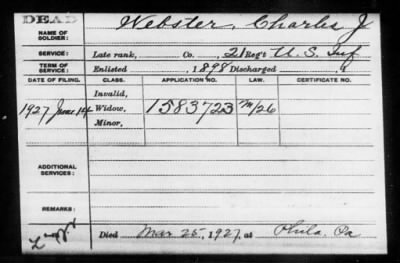 DEAD
NAME OF SOLDIER: Webster, Charles J
SERVICE: Late rank, Co. , 21 Reg't U. S. Inf
TERM OF SERVICE: Enlisted , 1898 Discharged , 1
DATE OF FILING. CLASS. APPLICATION NO. LAW. CERTIFICATE NO.
Invalid,
1927 June 14 Widow, 1583723 M/26
Minor,
ADDITIONAL SERVICES:
REMARKS:
Died Mar 25, 1927, at Phila. Pa